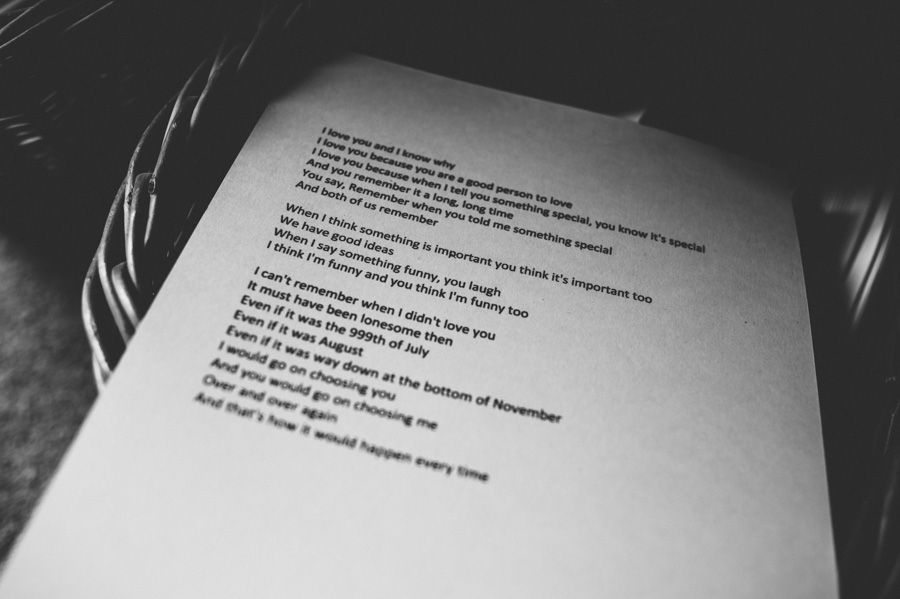 I love you and I know why
I love you because you are a good person to love
I love you because when I tell you something special, you know it's special
And you remember it a long, long time
You say, Remember when you told me something special
And both of us remember
When I think something is important you think it's important too
We have good ideas
When I say something funny, you laugh
I think I'm funny and you think I'm funny too
I can't remember when I didn't love you
It must have been lonesome then
Even if it was the 999th of July
Even if it was August
Even if it was way down at the bottom of November
I would go on choosing you
And you would go on choosing me
Over and over again
And that's how it would happen every time